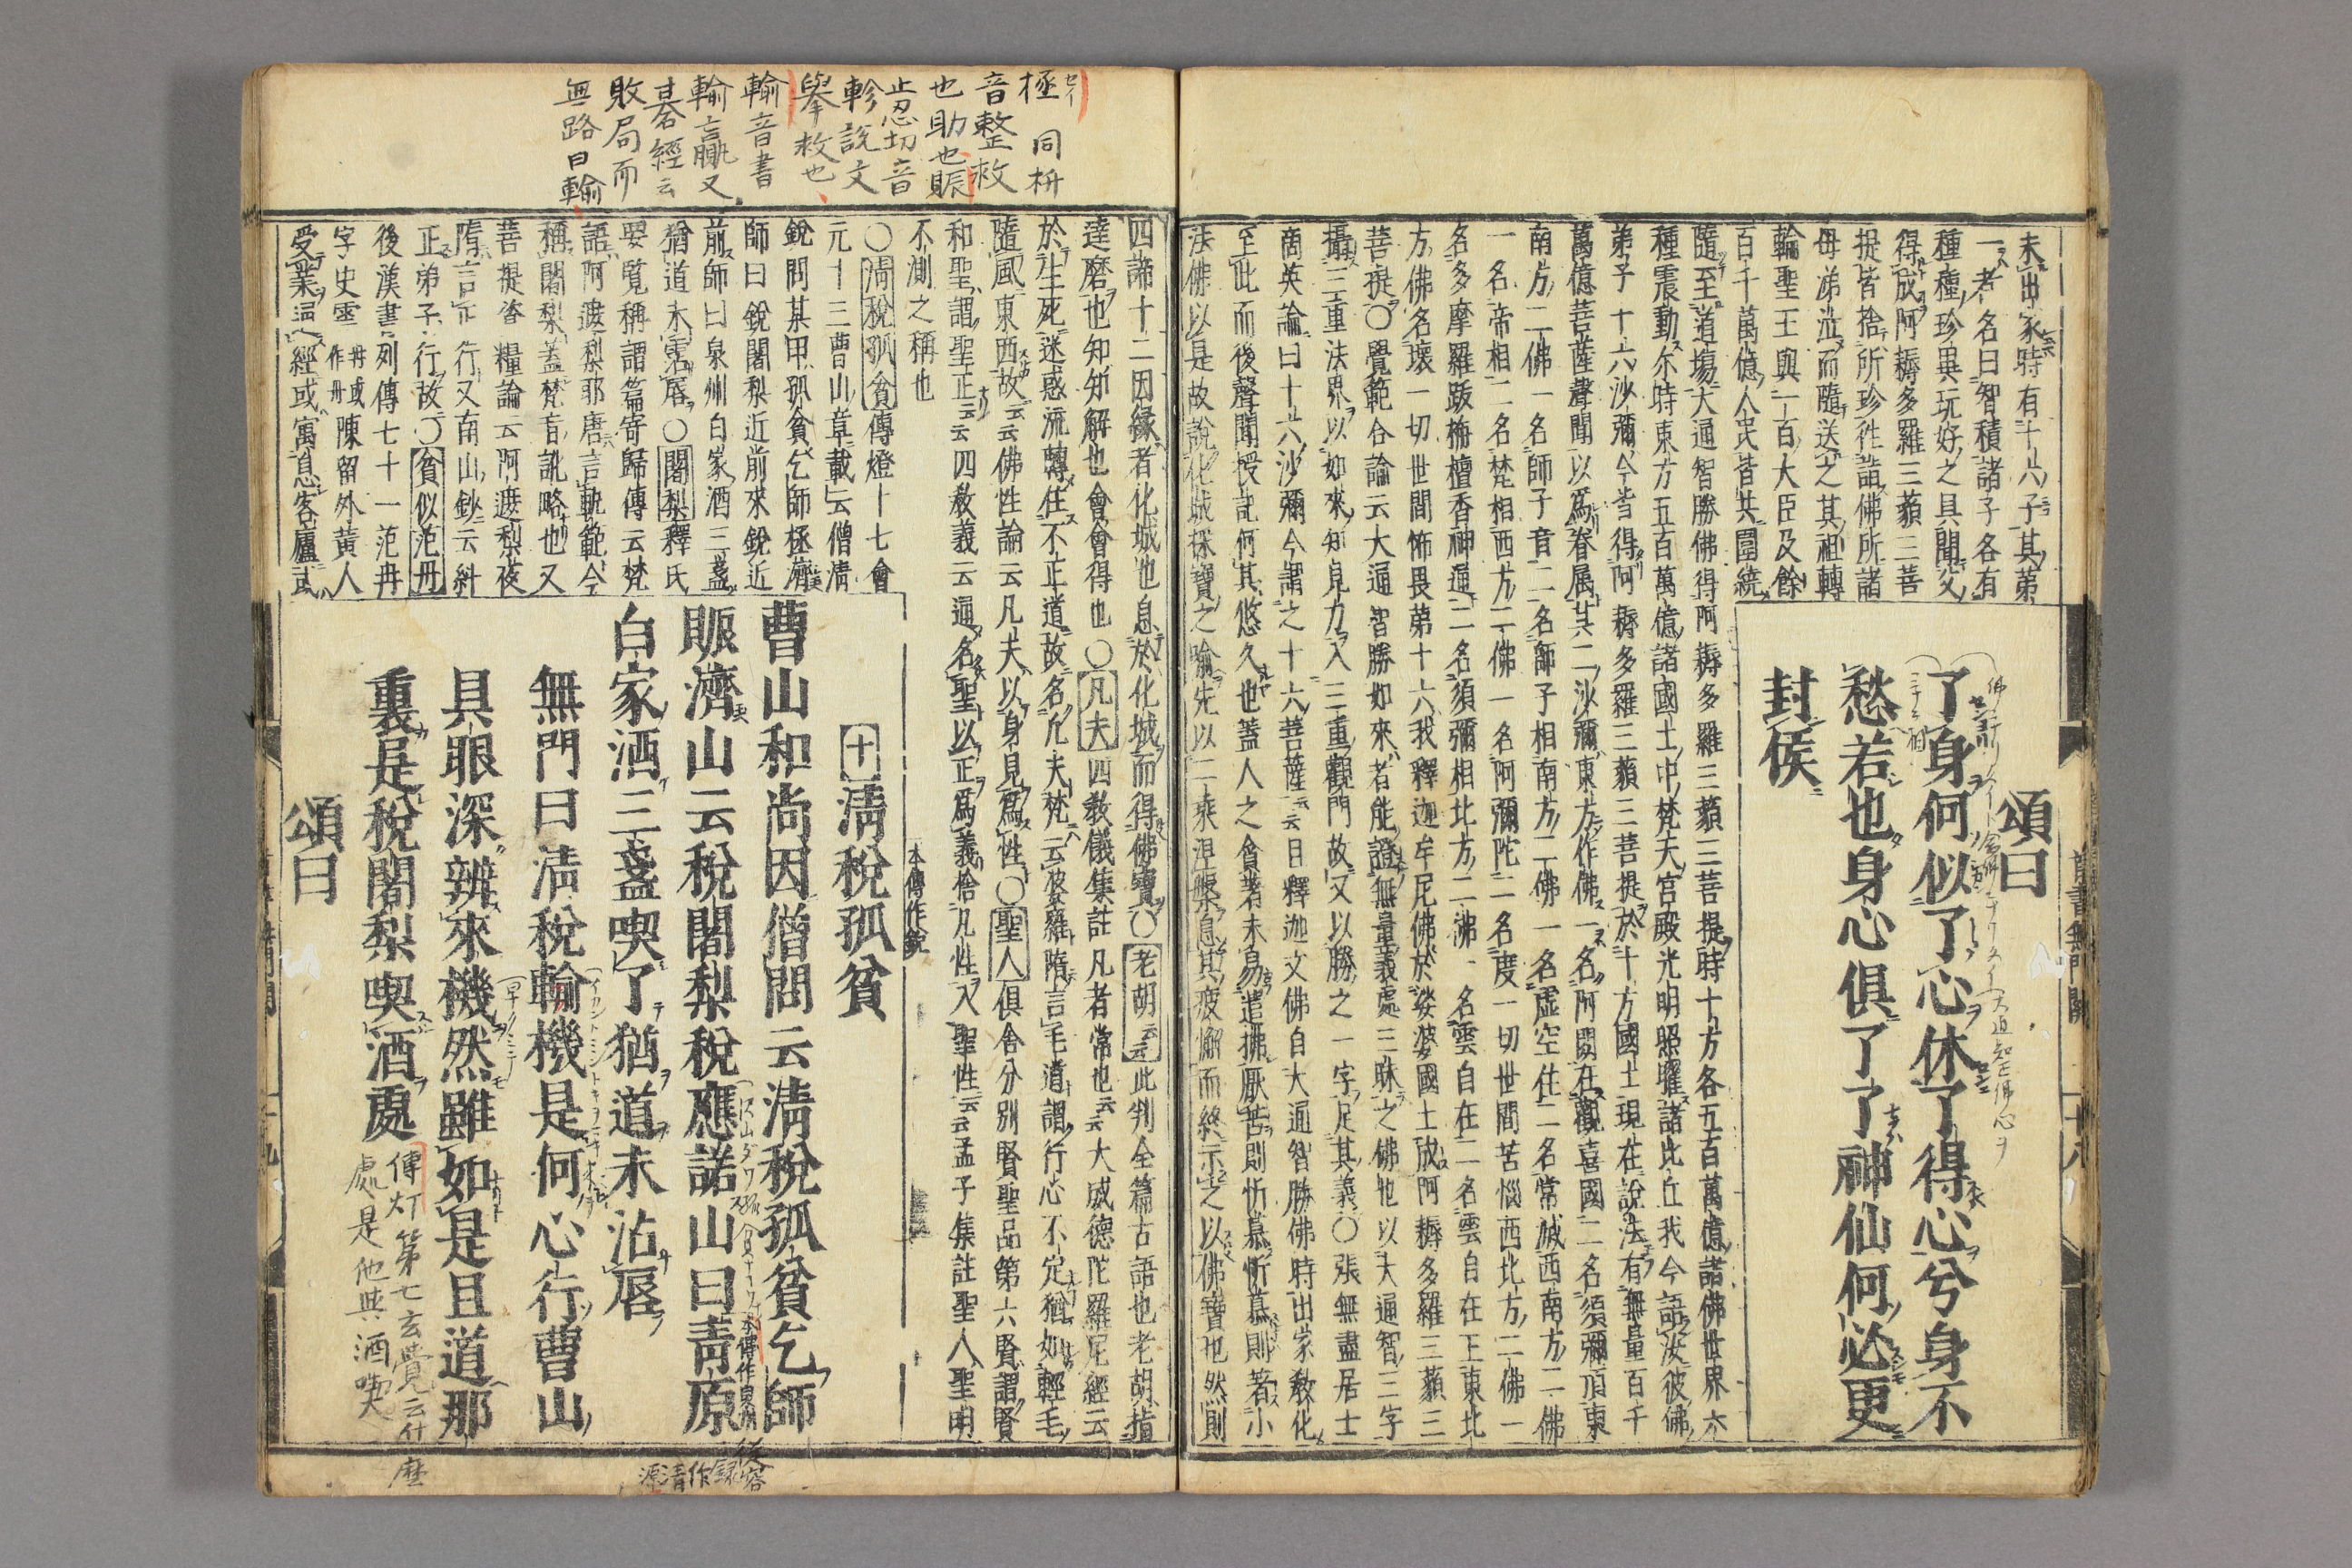 頌曰
了身何似了心休了得心兮身不
愁若也身心俱了了神仙何必更
封侯
未出家時有十六子其弟
一者名曰智積諸子各有
種種珍異玩好之具聞父
得成阿耨多羅三藐三菩
提皆捨所珍往詣佛所諸
母涕泣而隨送之其祖轉
輪聖王與一百大臣及餘
百千萬億人民皆共圍繞
隨至道場大通智勝佛得阿耨多羅三藐三菩提時十方各五百萬億諸佛世界六
種震動尔時東方五百萬億諸國土中梵天宮殿光明照曜諸比丘我今語汝彼佛
弟子十六沙彌今皆得阿耨多羅三藐三菩提於十方國土現在說法有無量百千
萬億菩薩聲聞以爲眷属其二沙彌東方作佛一名阿閦在歡喜國二名須彌頂東
南方二佛一名師子音二名師子相南方二佛一名虛空住二名常滅西南方二佛
一名帝相二名梵相西方二佛一名阿彌陀二名度一切世間苦惱西北方二佛一
名多摩羅跋栴檀香神通二名須彌相北方二佛一名雲自在二名雲自在王東北
方佛名壞一切世間怖畏第十六我釋迦牟尼佛於娑婆國土成阿耨多羅三藐三
菩提〇覺範合論云大通智勝如來者能證無量義處三昧之佛也以大通智三字
攝三重法界以如來知見力入三重觀門故又以勝之一字足其義〇張無盡居士
商英論曰十六沙彌今謂之十六菩薩云云曰釋迦文佛自大通智勝佛時出家教化
至此而後聲聞授記何其悠久也蓋人之貪著未易遣拂厭苦則忻慕忻慕則著小
法佛以是故說化城探寶之喻先以二乘涅槃息其疲懈而終示之以佛寶也然則
四諦十二因縁者化城也息於化城而得佛寶〇老胡云云此判全篇古語也老胡指
達磨也知知解也會會得也〇凡夫四教儀集註凡者常也云云大威德陀羅尼經云
於生死迷惑流轉住不正道故名凡夫梵云婆羅隋言毛道謂行心不定猶如輕毛
隨風東西故云云佛性論云凡夫以身見爲性〇聖人俱舍分別賢聖品第六賢謂賢
和聖謂聖正云云四教義云通名聖以正爲義捨凡性入聖性云云孟子集註聖人聖明
不測之稱也
十 清稅孤貧
本傳作銳
曹山和尚因僧問云清稅孤貧乞師
賑濟山云稅闍梨稅應諾山曰靑原
本傳作泉州
白家酒三盞喫了猶道未沾唇
無門曰清稅輸機是何心行曹山
具眼深辨來機然雖如是且道那
裏是稅闍梨喫酒處
頌曰
〇淸稅孤貧傳燈十七會
元十三曹山章載云僧清
銳問某甲孤貧乞師拯濟
師曰銳闍梨近前來銳近
前師曰泉州白家酒三盞
猶道未沾唇〇闍梨釋氏
要覧稱謂篇寄歸傳云梵
語阿遮梨耶唐言軌範今
稱闍梨蓋梵音訛略也又
菩提資糧論云阿遮梨夜
隋言正行又南山鈔云糾
正弟子行故〇貧似范丹
後漢書列傳七十一范冉
字史雲冉或作丹陳留外黃人
受業經或寓息客廬或
拯 同枡
音整救
也助也賑
止忍切音
軫說文
擧救也
輸音書
輸贏又
碁經云
敗局而
無路曰輸
傳灯第七玄覺云什麼
處是他與酒喫
從容
録作
清源